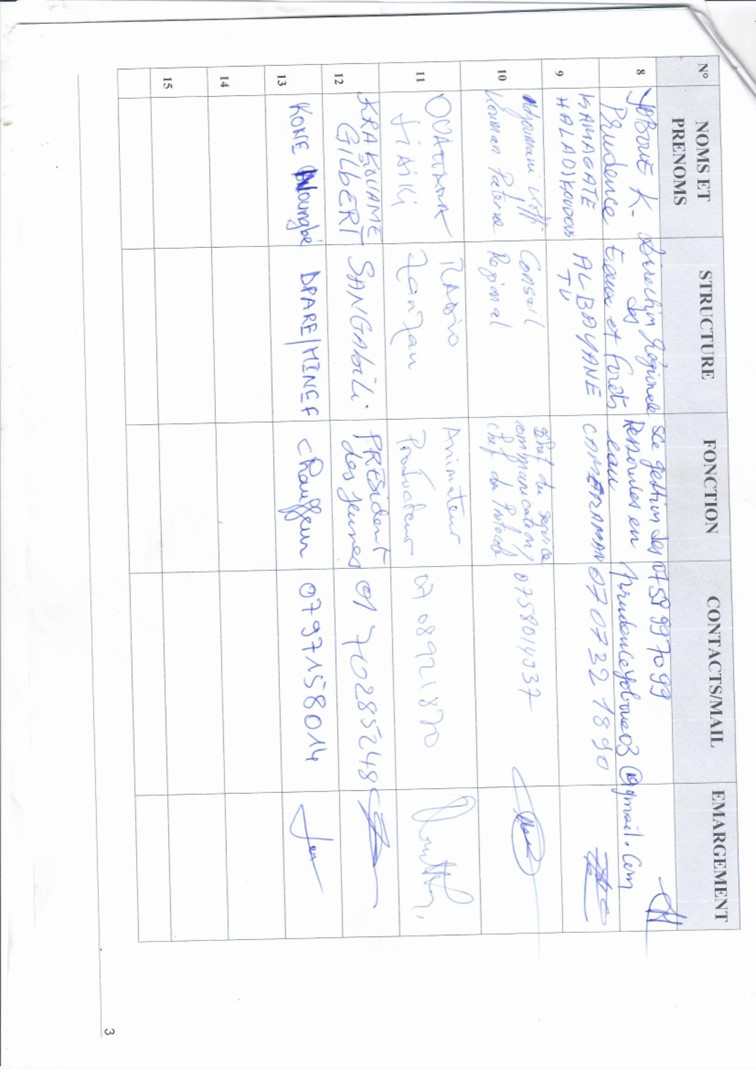 N° NOMS ET PRENOMS STRUCTURE FONCTION CONTACTS/MAIL EMARGEMENT
8 K. Prudence Direction Régionale des Eaux et Forêts gestion des ressources en eau 0758997099 prudenceyoboue03@gmail.com
9 KAMAGATE ALBAYANE TV CAMERAMAN 0707321890
10 Kouman Conseil Regional Chef du service communication/ chef du Protocole 0758014337
11 OUATTARA SIAIKI RADIO Zanzan Animateur Producteur 0708921870
12 KRA KOUAME GILBERT SANGABILI. PRESident des jeunes 0170285248
13 KONE DPARE/MINEF chauffeur 0797158014
14
15
3